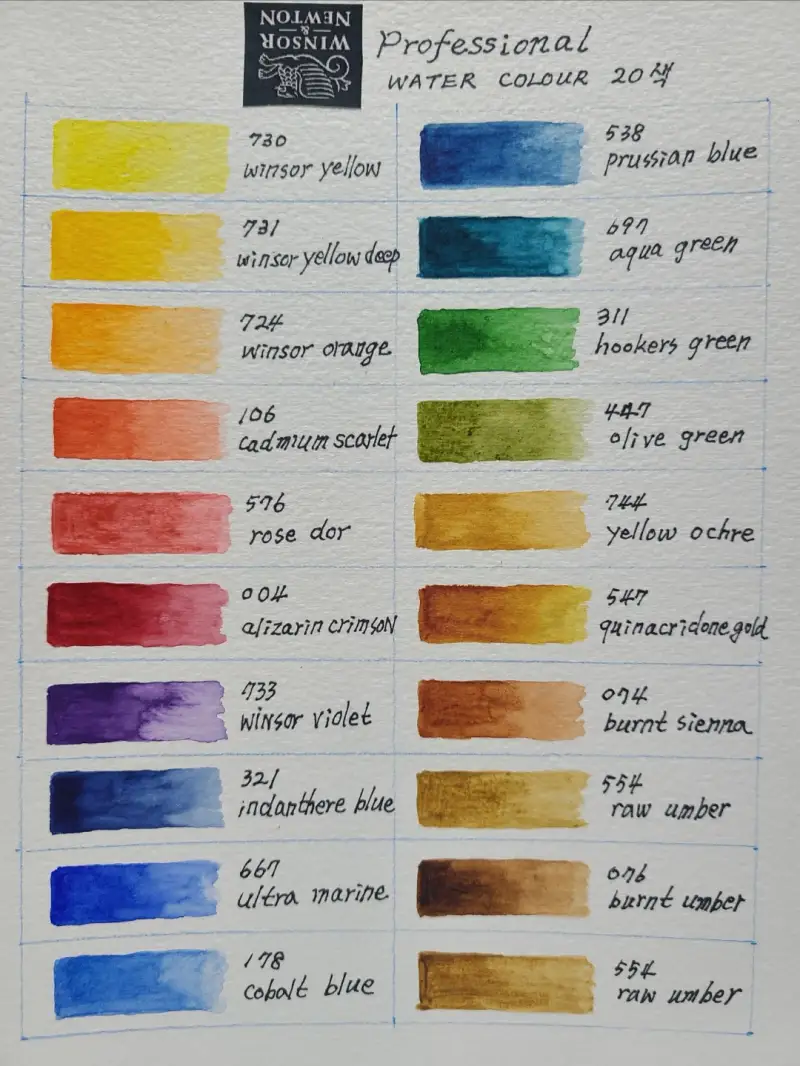 WINSOR
&
NEWTON
Professional
WATER COLOUR 20색
730
winsor yellow
731
winsor yellow deep
724
winsor orange
106
cadmium scarlet
576
rose dor
004
alizarin crimson
733
winsor violet
321
indanthere blue
667
ultra marine
178
cobalt blue
538
prussian blue
697
aqua green
311
hookers green
447
olive green
744
yellow ochre
547
quinacridone gold
074
burnt sienna
554
raw umber
076
burnt umber
554
raw umber